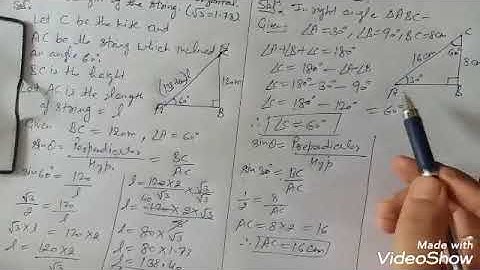 of the string. (√3=1.73)
Sol.
Let C be the kite and
AC be the string which inclined
an angle 60°.
BC is the height
Let AC is the length
of string = l
Given BC = 120m, ∠A = 60°
sinθ = Perpendicular/Hyp. = BC/AC
sin60° = 120/l
√3/2 = 120/l
√3 × l = 120×2
l = 120×2/√3
l = 120×2/√3 × √3/√3
l = 80×√3
l = 80×1.73
l = 138.40
C
120m
A 60° B
Sol. In right angle △ABC-
Given: ∠A=30°, ∠B=90°, BC=8cm
∠A+∠B+∠C=180°
∠C = 180° - ∠A - ∠B
∠C = 180° - 30° - 90°
∠C = 180° - 120° = 60°
∴ ∠C = 60°
sinθ = Perpendicular/Hyp
sin30° = BC/AC
1/2 = 8/AC
AC = 8×2 = 16
∴ AC = 16cm
C
60°
16cm
8cm
30°
A B
Made with
VideoShow